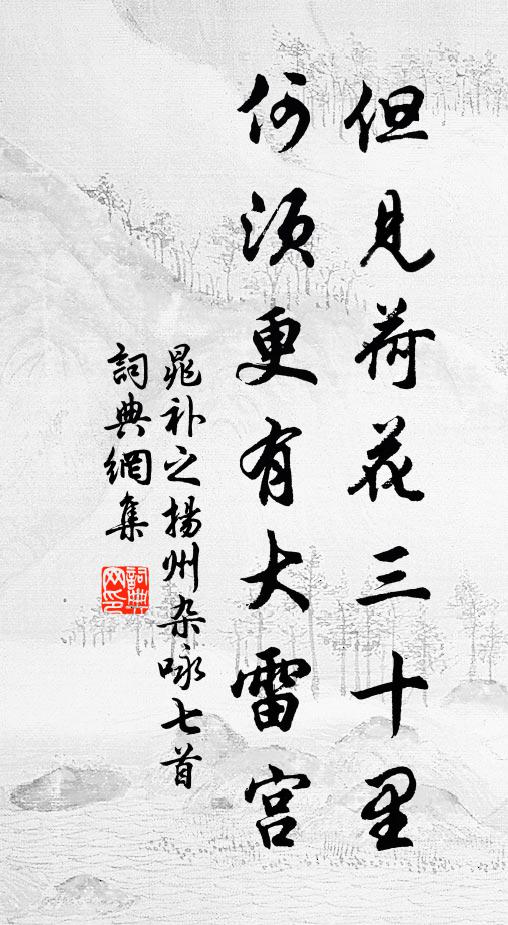 但見荷花三十里
何須更有大雷宫
晁补之揚州杂咏七首
詞典網集
詞典
网印